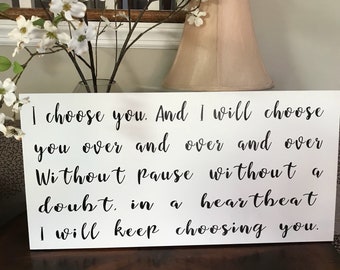 I choose you. And I will choose
you over and over and over
Without pause without a
doubt. in a heartbeat
I will keep choosing you.